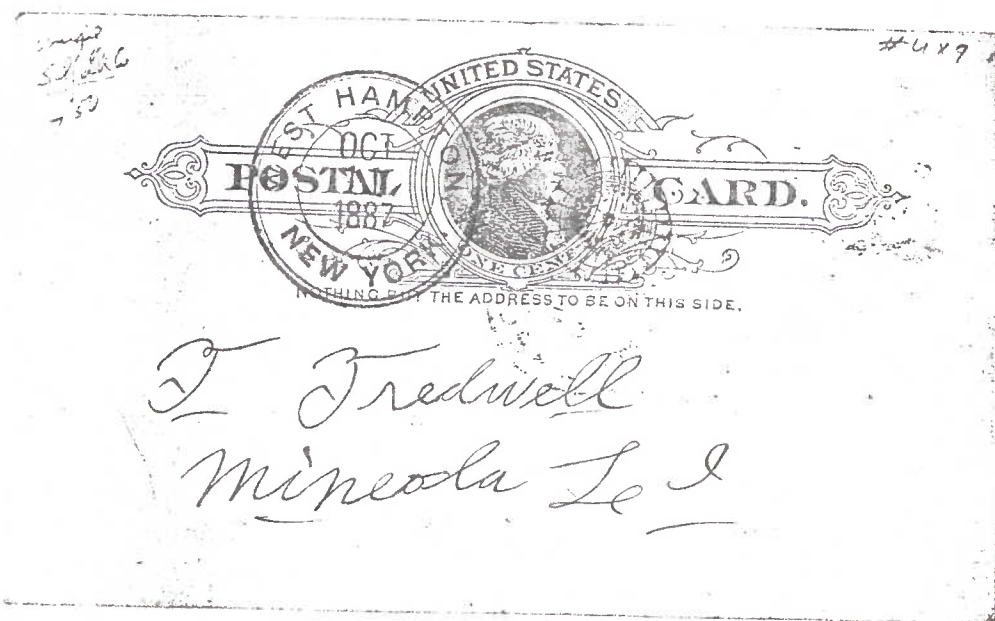 #4x9
UNITED STATES
POSTAL CARD.
ONE CENT
EAST HAMPTON
OCT
1887
NEW YORK.
NOTHING BUT THE ADDRESS TO BE ON THIS SIDE.
T Tredwell
Mineola L I